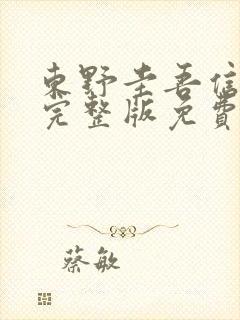 東野圭吾信
完整版免費
蔡敏